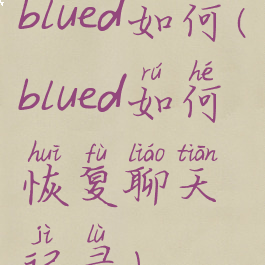 blued如何(
rú hé
blued如何
huī fù liáo tiān
恢复聊天
jì lù
记录)